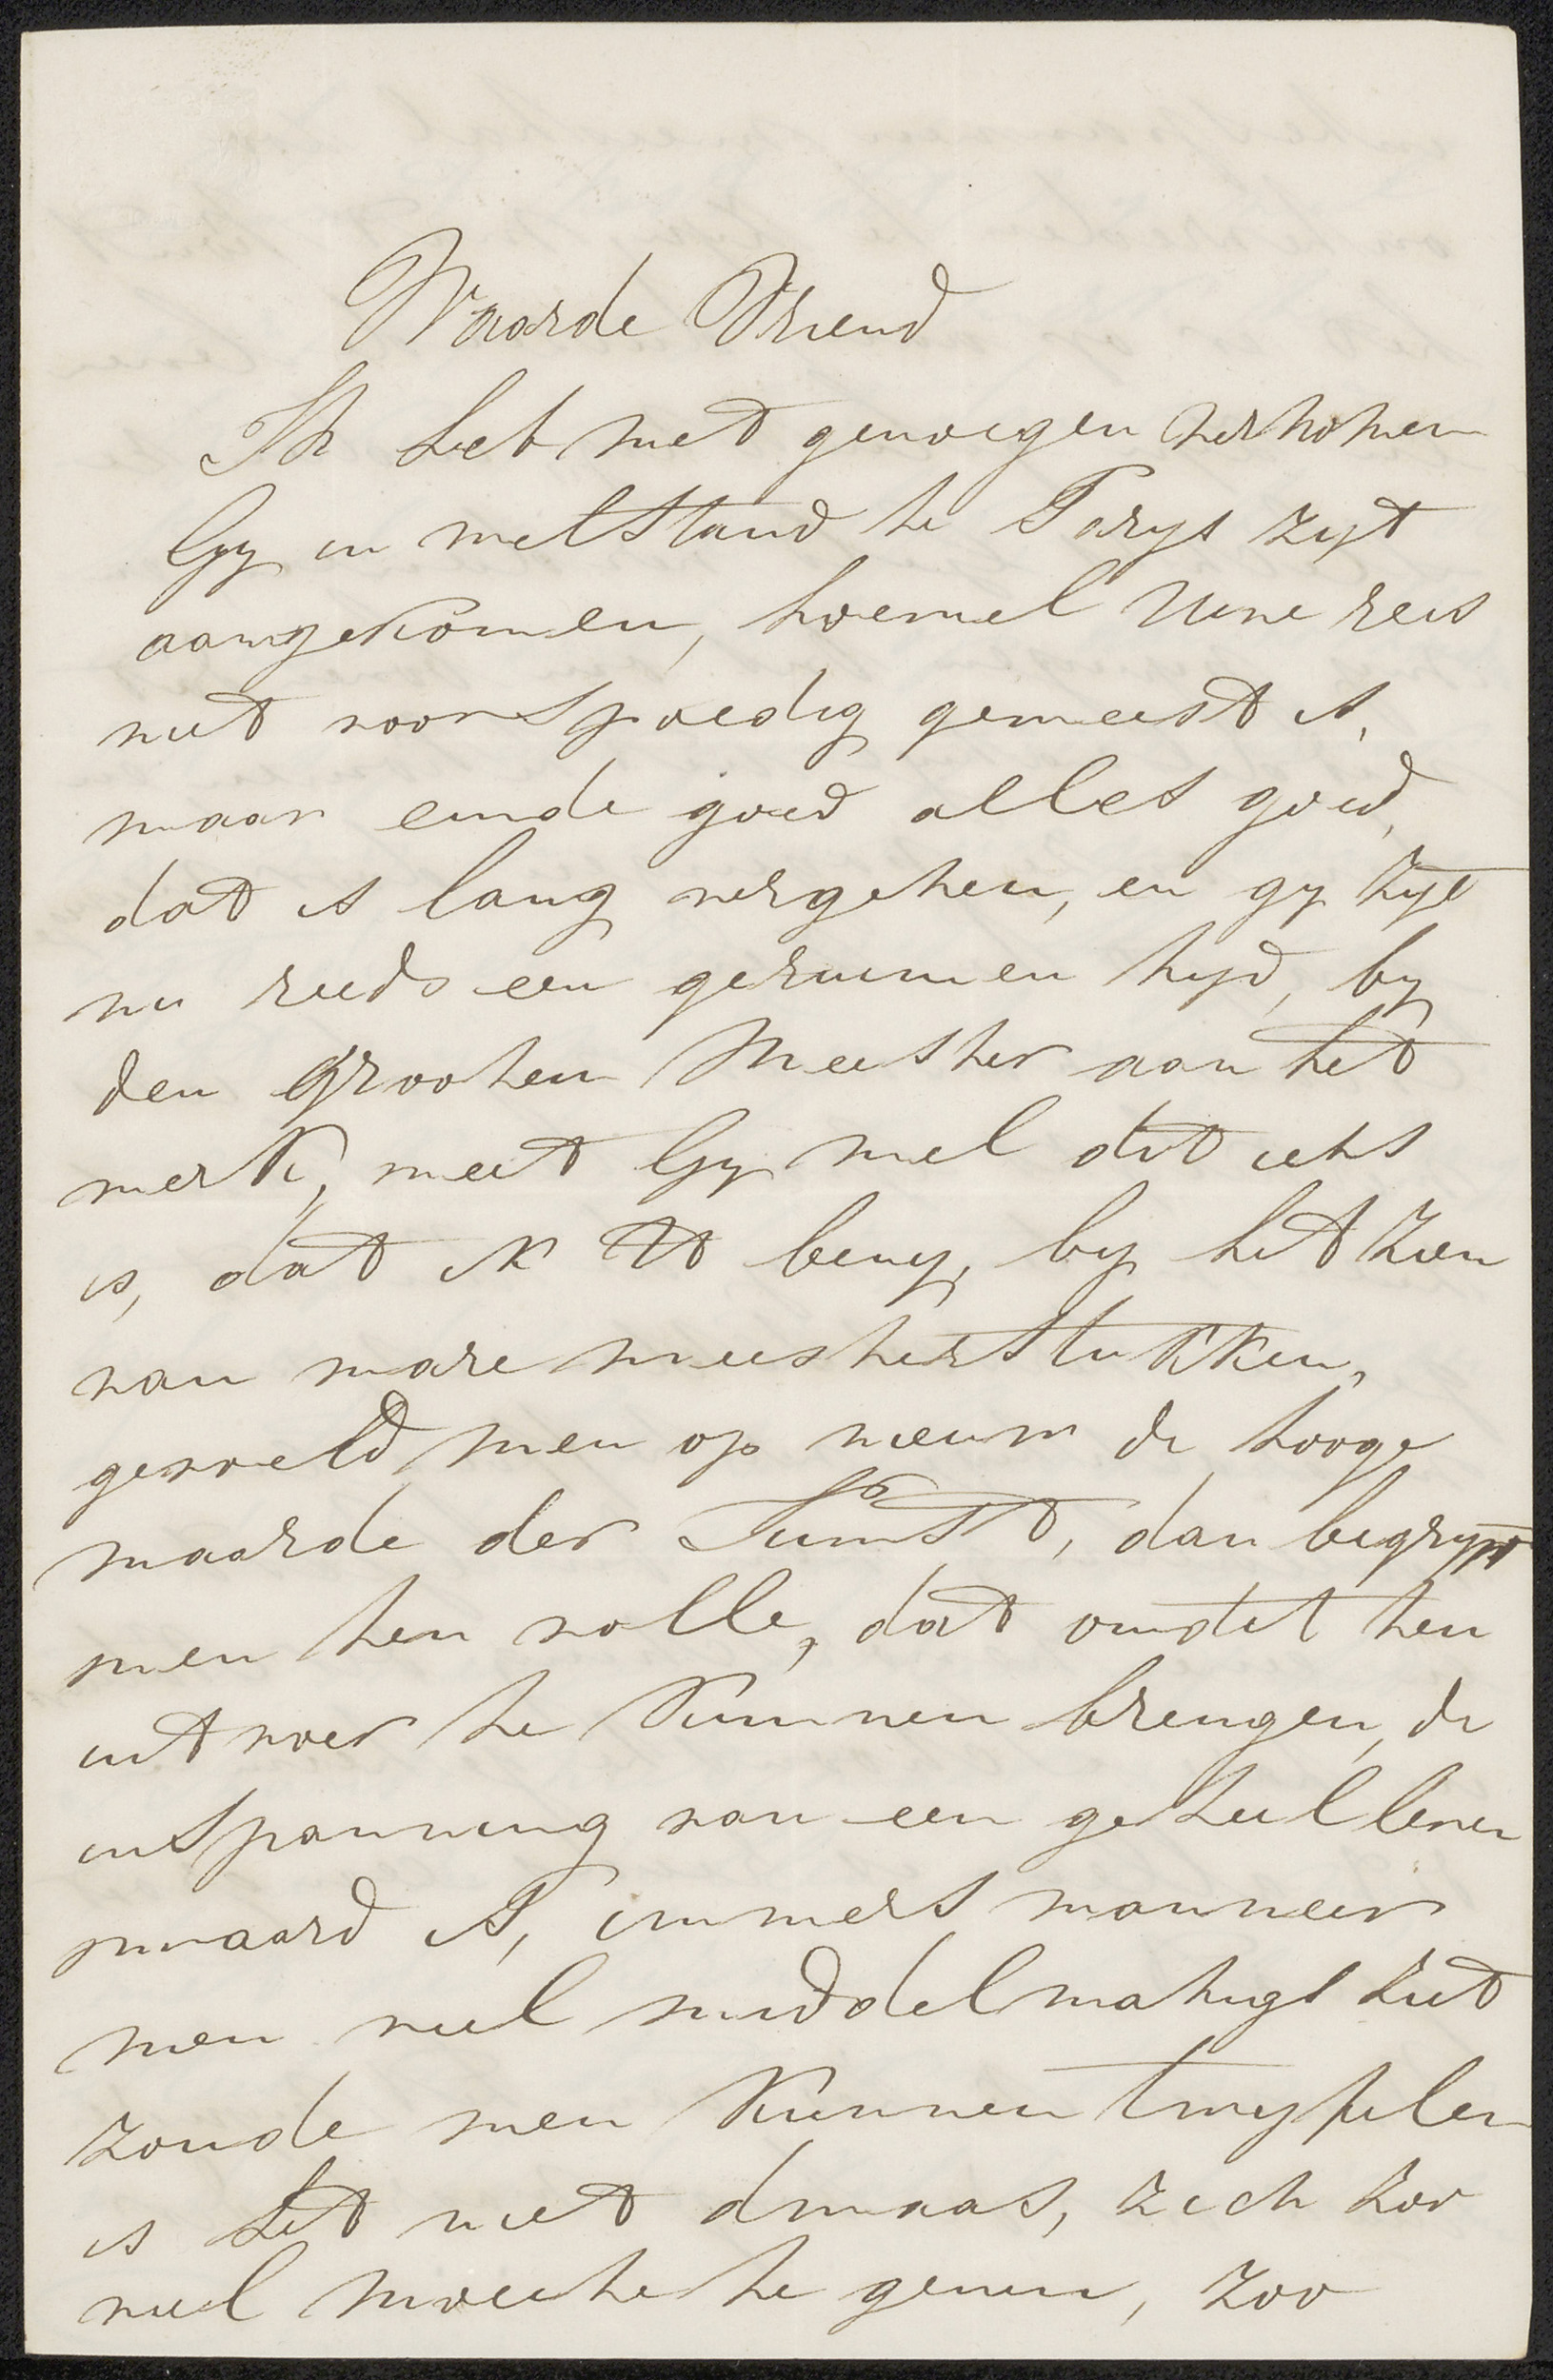 Waarde Vriend
Ik heb met genoegen vernomen
Gy in welstand te Parys zyt
aangekomen, hoewel Uwe reis
niet voorspoedig geweest is,
maar einde goed alles goed,
dat is lang vergeten, en gy zyt
nu reeds een geruimen tyd, by
den Grooten Meester aan het
werk, weet Gy wel dat iets
is, dat ik U beny, by het zien
van ware meesterstukken,
gevoeld men op nieuw de hooge
waarde der Kunst, dan begrypt
men ten volle, dat om dit ten
uitvoer te kunnen brengen, de
inspanning van een geheel leven
waard is, immers wanneer
men veel middelmatigs ziet
zoude men kunnen twyfelen
is het niet dwaas, zich zoo
veel moeite te geven, zoo